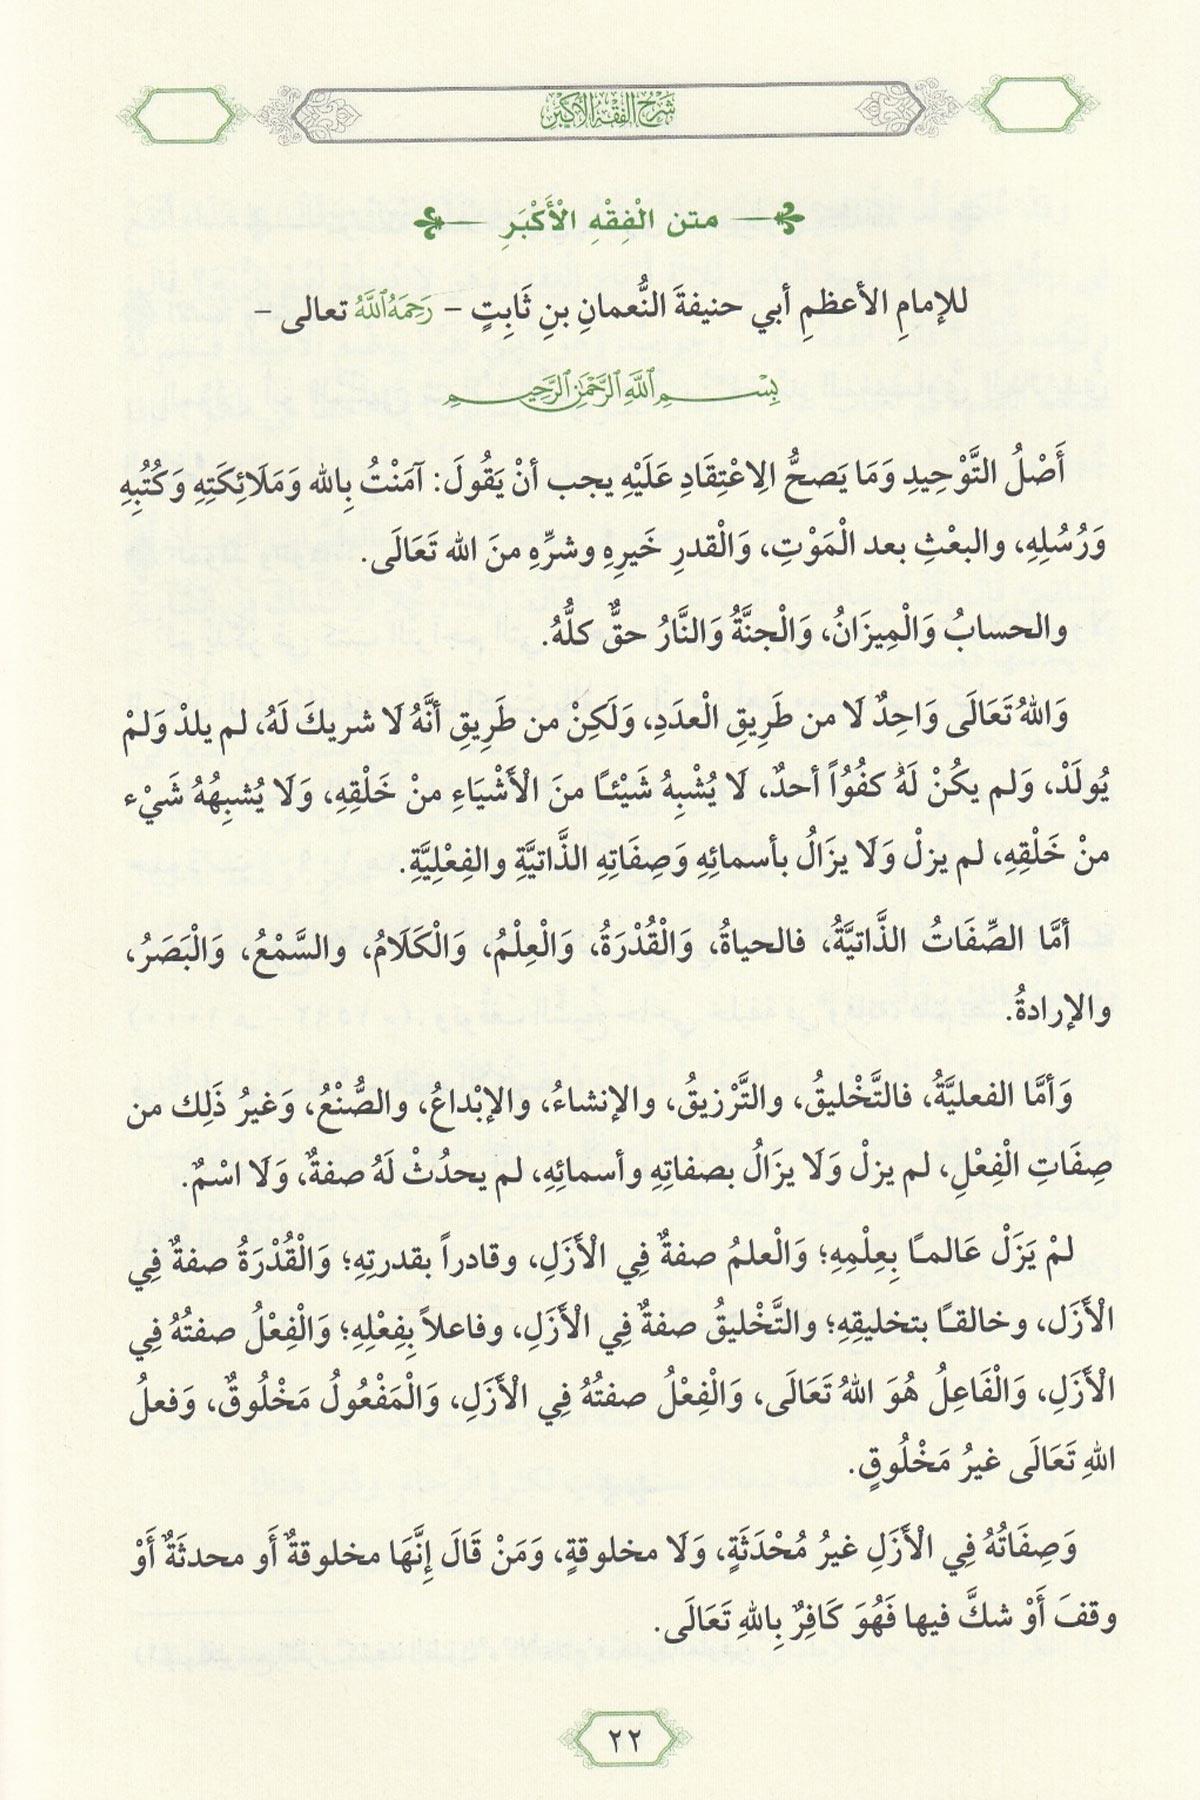 شرح الفقه الأكبر
متن الْفِقْهِ الْأَكْبَرِ
للإمامِ الأعظمِ أبي حنيفةَ النُّعمانِ بنِ ثَابِتٍ – رَحِمَهُ ٱللَّهُ تعالى –
بِسْمِ ٱللَّهِ ٱلرَّحْمَٰنِ ٱلرَّحِيمِ
أَصْلُ التَّوْحِيدِ وَمَا يَصحُّ الِاعْتِقَادِ عَلَيْهِ يجب أنْ يَقُولَ: آمَنْتُ بِالله وَمَلَائِكَتِهِ وَكُتُبِهِ
وَرُسُلِهِ، والبعْثِ بعد الْمَوْتِ، وَالْقدرِ خَيرِهِ وشرِّهِ منَ الله تَعَالَى.
والحسابُ وَالْمِيزَانُ، وَالْجنَّةُ وَالنَّارُ حقٌّ كلُّهُ.
وَاللهُ تَعَالَى وَاحِدٌ لَا من طَرِيقِ الْعدَدِ، وَلَكِنْ من طَرِيقِ أنَّهُ لَا شريكَ لَهُ، لم يلدْ وَلمْ
يُولَدْ، وَلم يكُنْ لَهُ كفُوُاً أحدٌ، لَا يُشْبِهُ شَيْئًا منَ الْأَشْيَاءِ منْ خَلْقِهِ، وَلَا يُشبِهُهُ شَيْء
منْ خَلْقِهِ، لم يزلْ وَلَا يزَالُ بأسمائِهِ وَصِفَاتِهِ الذَّاتيَّةِ والفِعْلِيَّةِ.
أمَّا الصِّفَاتُ الذَّاتيَّةُ، فالحياةُ، وَالْقُدْرَةُ، وَالْعِلْمُ، وَالْكَلَامُ، والسَّمْعُ، وَالْبَصَرُ،
والإرادةُ.
وَأمَّا الفعليَّةُ، فالتَّخْليقُ، والتَّرْزيقُ، والإنشاءُ، والإبْداعُ، والصُّنْعُ، وَغيرُ ذَلِك من
صِفَاتِ الْفِعْلِ، لم يزلْ وَلَا يزَالُ بصفاتِهِ وأسمائِهِ، لم يحدُثْ لَهُ صفةٌ، وَلَا اسْمٌ.
لمْ يَزَلْ عَالمًا بِعِلْمِهِ؛ وَالْعلمُ صفةٌ فِي الْأَزَلِ، وقادراً بقدرتِهِ؛ وَالْقُدْرَةُ صفةٌ فِي
الْأَزَل، وخالقًا بتخليقِهِ؛ والتَّخْليقُ صفةٌ فِي الْأَزَلِ، وفاعلاً بِفِعْلِهِ؛ وَالْفِعْلُ صفتُهُ فِي
الْأَزَلِ، وَالْفَاعِلُ هُوَ اللهُ تَعَالَى، وَالْفِعْلُ صفتُهُ فِي الْأَزَلِ، وَالْمَفْعُولُ مَخْلُوقٌ، وَفعلُ
اللهِ تَعَالَى غيرُ مَخْلُوقٍ.
وَصِفَاتُهُ فِي الْأَزَلِ غيرُ مُحْدَثَةٍ، وَلَا مخلوقةٍ، وَمَنْ قَالَ إِنَّهَا مخلوقةٌ أَو محدثَةٌ أَوْ
وقفَ أَوْ شكَّ فيها فَهُوَ كَافِرٌ بِاللهِ تَعَالَى.
٢٢